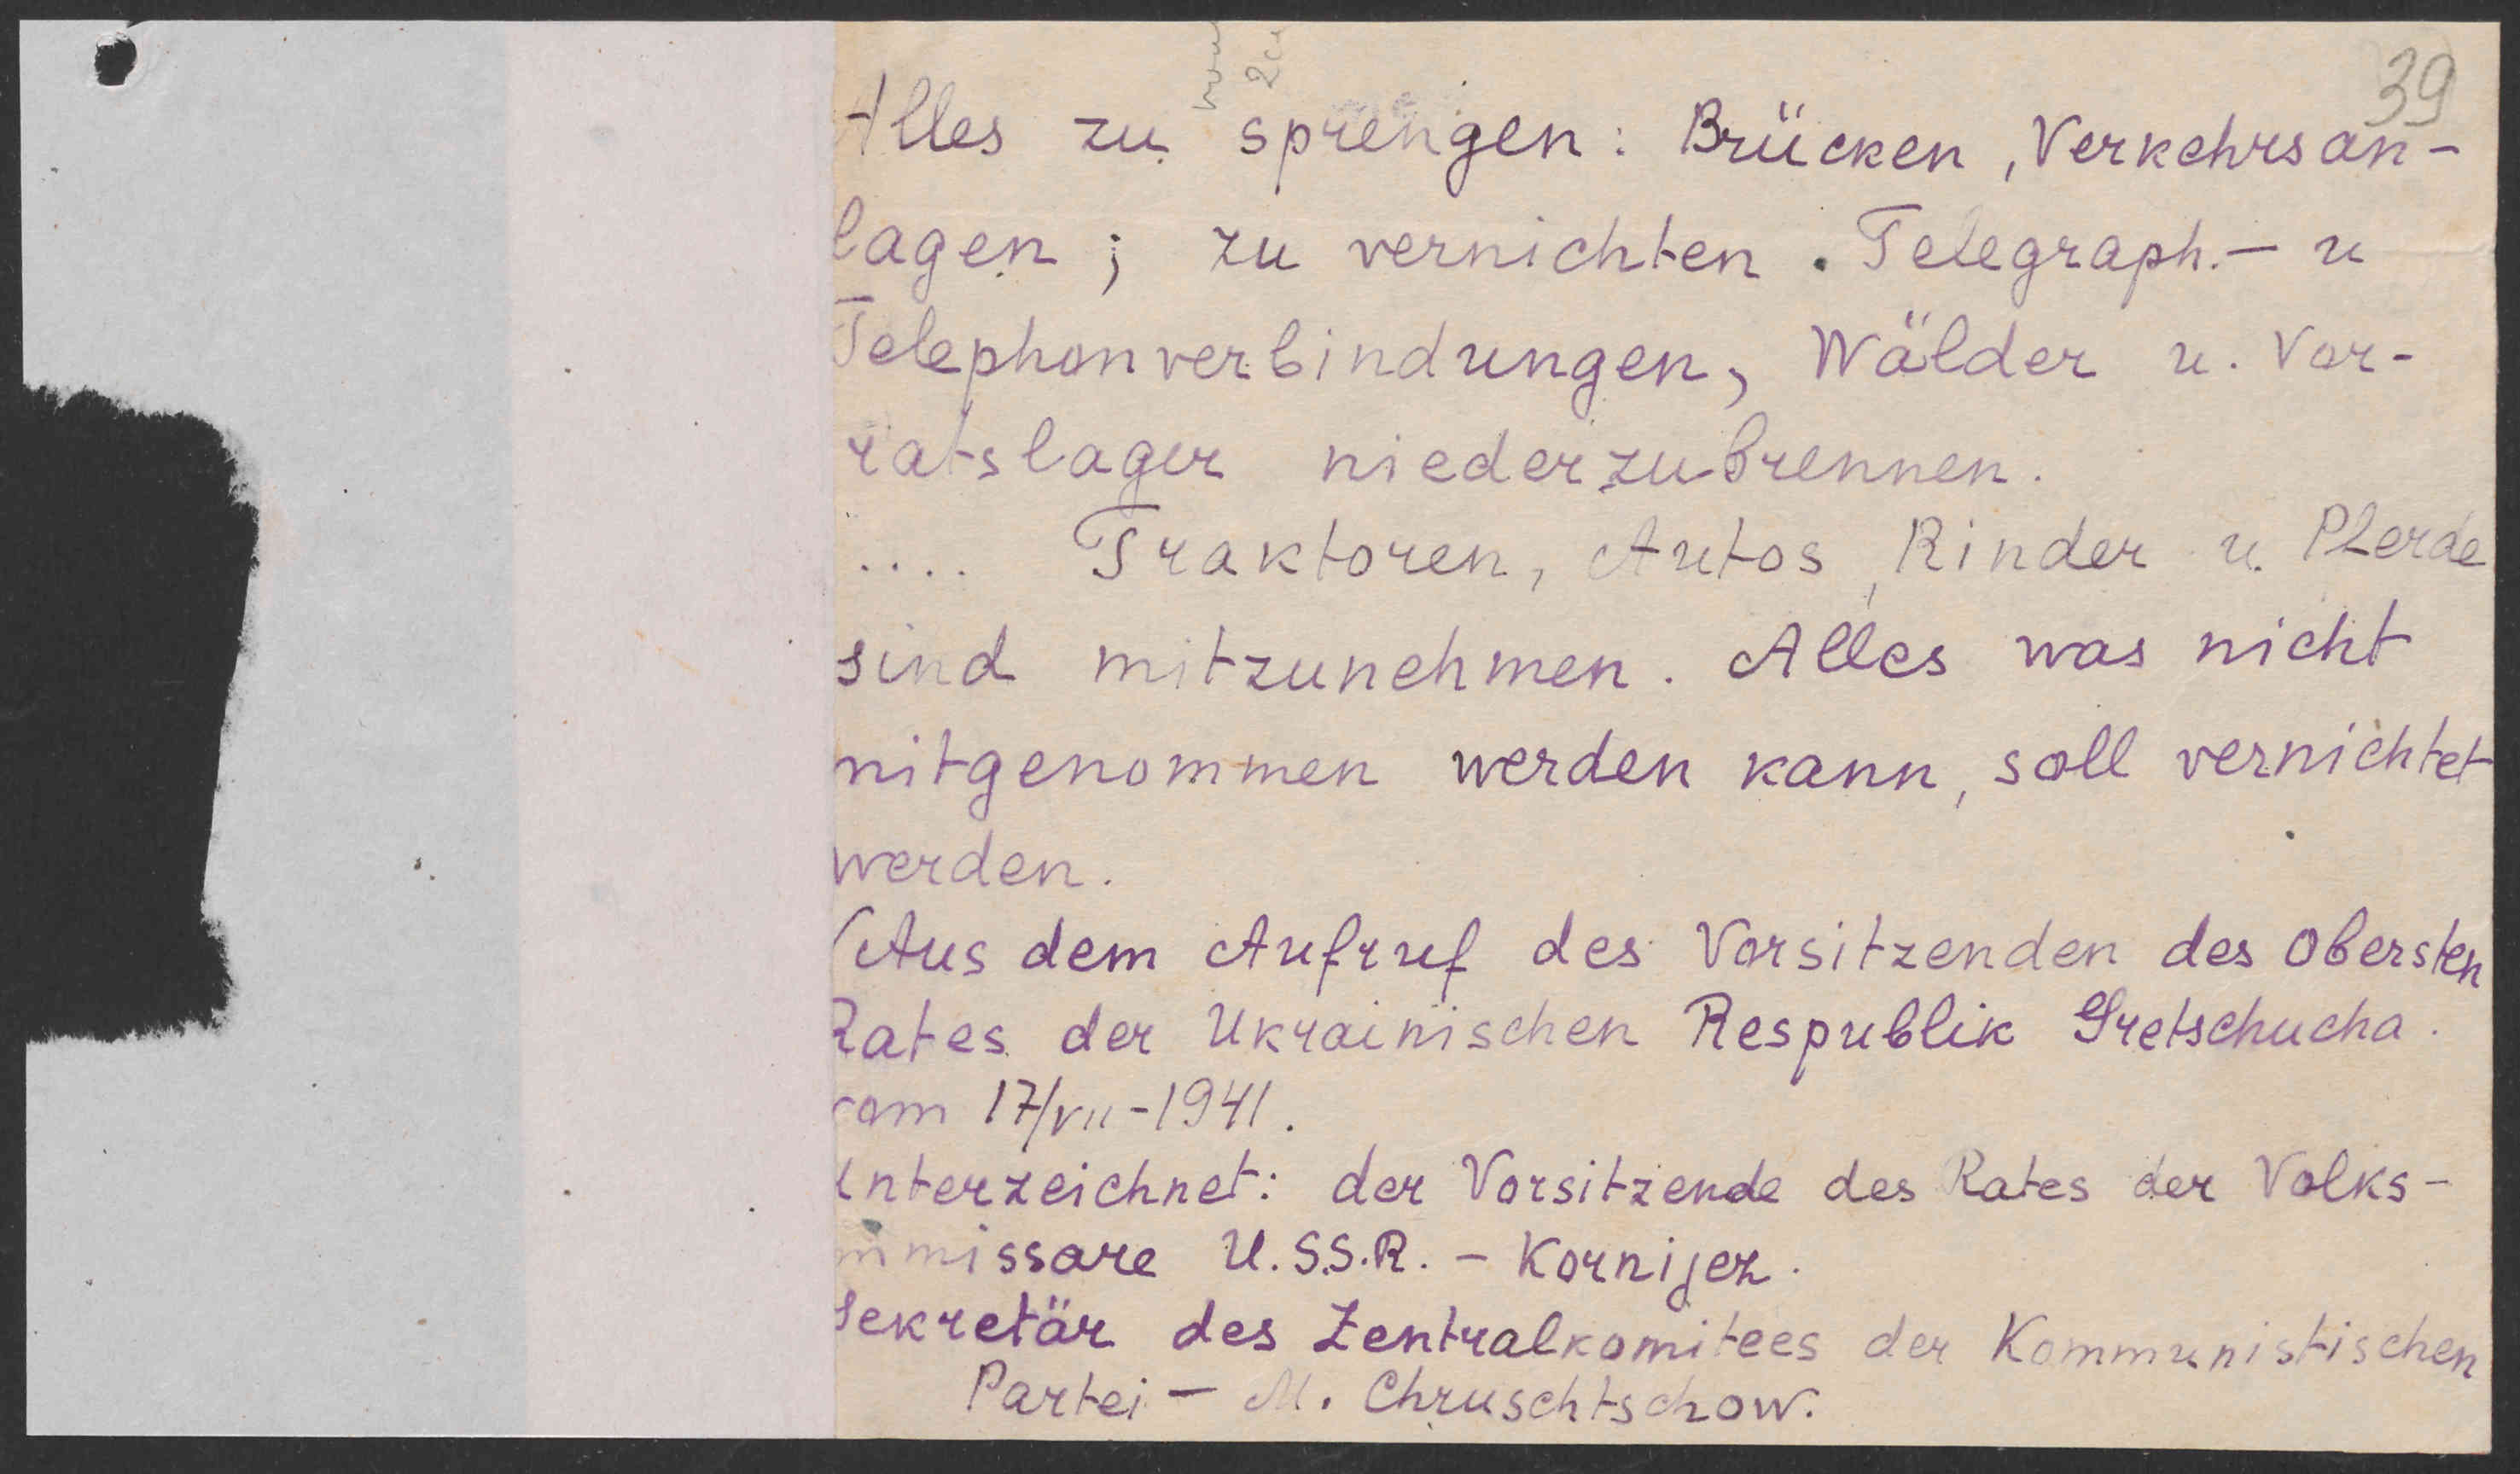 39
Alles zu sprengen: Brücken, Verkehrsan-
lagen; zu vernichten. Telegraph.- u
Telephonverbindungen, Wälder u. Vor-
ratslager niederzubrennen.
.... Traktoren, Autos, Rinder u. Pferde
sind mitzunehmen. Alles was nicht
mitgenommen werden kann, soll vernichtet
werden.
(Aus dem Aufruf des Vorsitzenden des Obersten
Rates der Ukrainischen Respublik Gretschucha.
vom 17/VII-1941.
Unterzeichnet: der Vorsitzende des Rates der Volks-
mmissare U.S.S.R. - Kornijez.
Sekretär des Zentralkomitees der Kommunistischen
Partei - M. Chruschtschow.